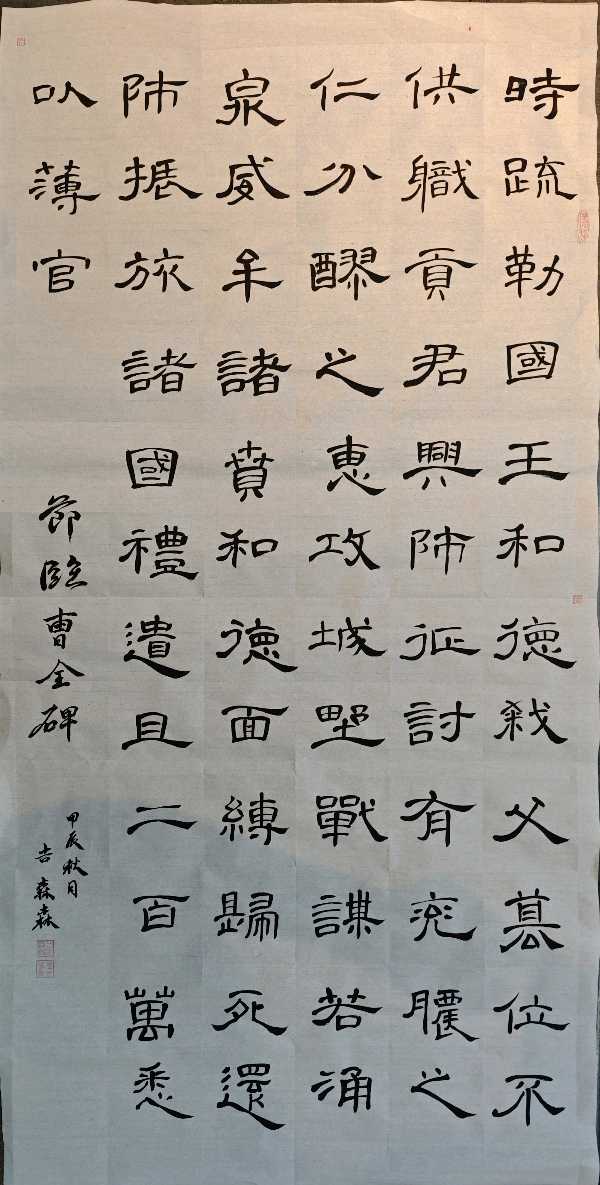 時疏勒國王和德弒父篡位不
供職貢君興師征討有兗膿之
仁分醪之惠攻城野戰謀若涌
泉威牟諸賁和德面縛歸死還
師振旅諸國禮遺且二百萬悉
以薄官
節臨曹全碑
甲辰秋月
吉森森